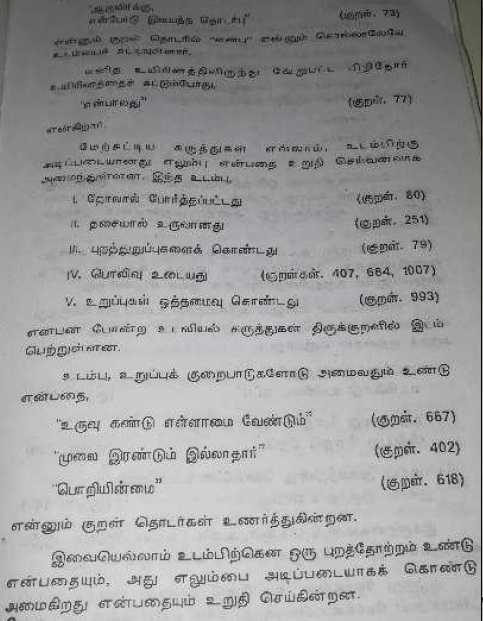 "ஆருயிர்க்கு,
என்போடு இயைந்த தொடர்பு" (குறள். 73)
என்னும் குறள் தொடரில் "என்பு" என்னும் சொல்லாலேயே
உடலையச் சுட்டியுள்ளார்.
மனித உயிரினத்திலிருந்து வேறுபட்ட பிறிதோர்
உயிரினத்தைச் சுட்டும்போது,
"என்பிலது" (குறள். 77)
என்கிறார்.
மேற்சுட்டிய கருத்துகள் எல்லாம், உடம்பிற்கு
அடிப்படையானது எலும்பு என்பதை உறுதி செய்வனவாக
அமைந்துள்ளன. இந்த உடம்பு,
I. தோலால் போர்த்தப்பட்டது (குறள். 80)
II. தசையால் உருவானது (குறள். 251)
III. புறத்துறுப்புகளைக் கொண்டது (குறள். 79)
IV. பொலிவு உடையது (குறள்கள். 407, 684, 1007)
V. உறுப்புகள் ஒத்தமைவு கொண்டது (குறள். 993)
என்பன போன்ற உடலியல் கருத்துகள் திருக்குறளில் இடம்
பெற்றுள்ளன.
உடம்பு, உறுப்புக் குறைபாடுகளோடு அமைவதும் உண்டு
என்பதை,
"உருவு கண்டு எள்ளாமை வேண்டும்" (குறள். 667)
"முலை இரண்டும் இல்லாதாள்" (குறள். 402)
"பொறியின்மை" (குறள். 618)
என்னும் குறள் தொடர்கள் உணர்த்துகின்றன.
இவையெல்லாம் உடம்பிற்கென ஒரு புறத்தோற்றம் உண்டு
என்பதையும், அது எலும்பை அடிப்படையாகக் கொண்டு
அமைகிறது என்பதையும் உறுதி செய்கின்றன.